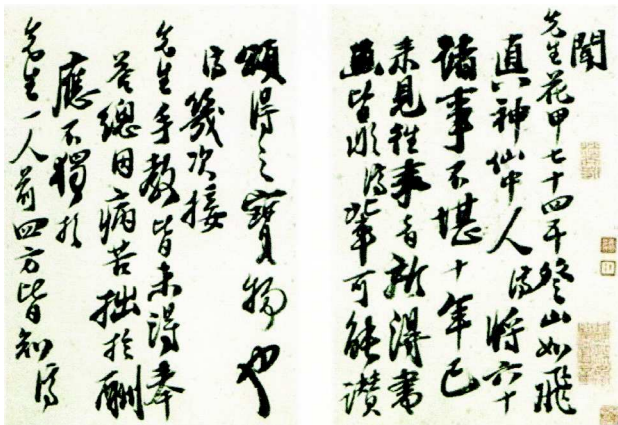 聞
先生花甲七十四五登山如飛
真神仙中人濟將六十
諸事不堪十年已
來見往事者新得書
畫皆非濟輩可能讚
頌得之寶物也
濟幾次接
先生手教皆未得奉
答總因病苦拙於酬
應不獨於
先生一人前四方皆知濟